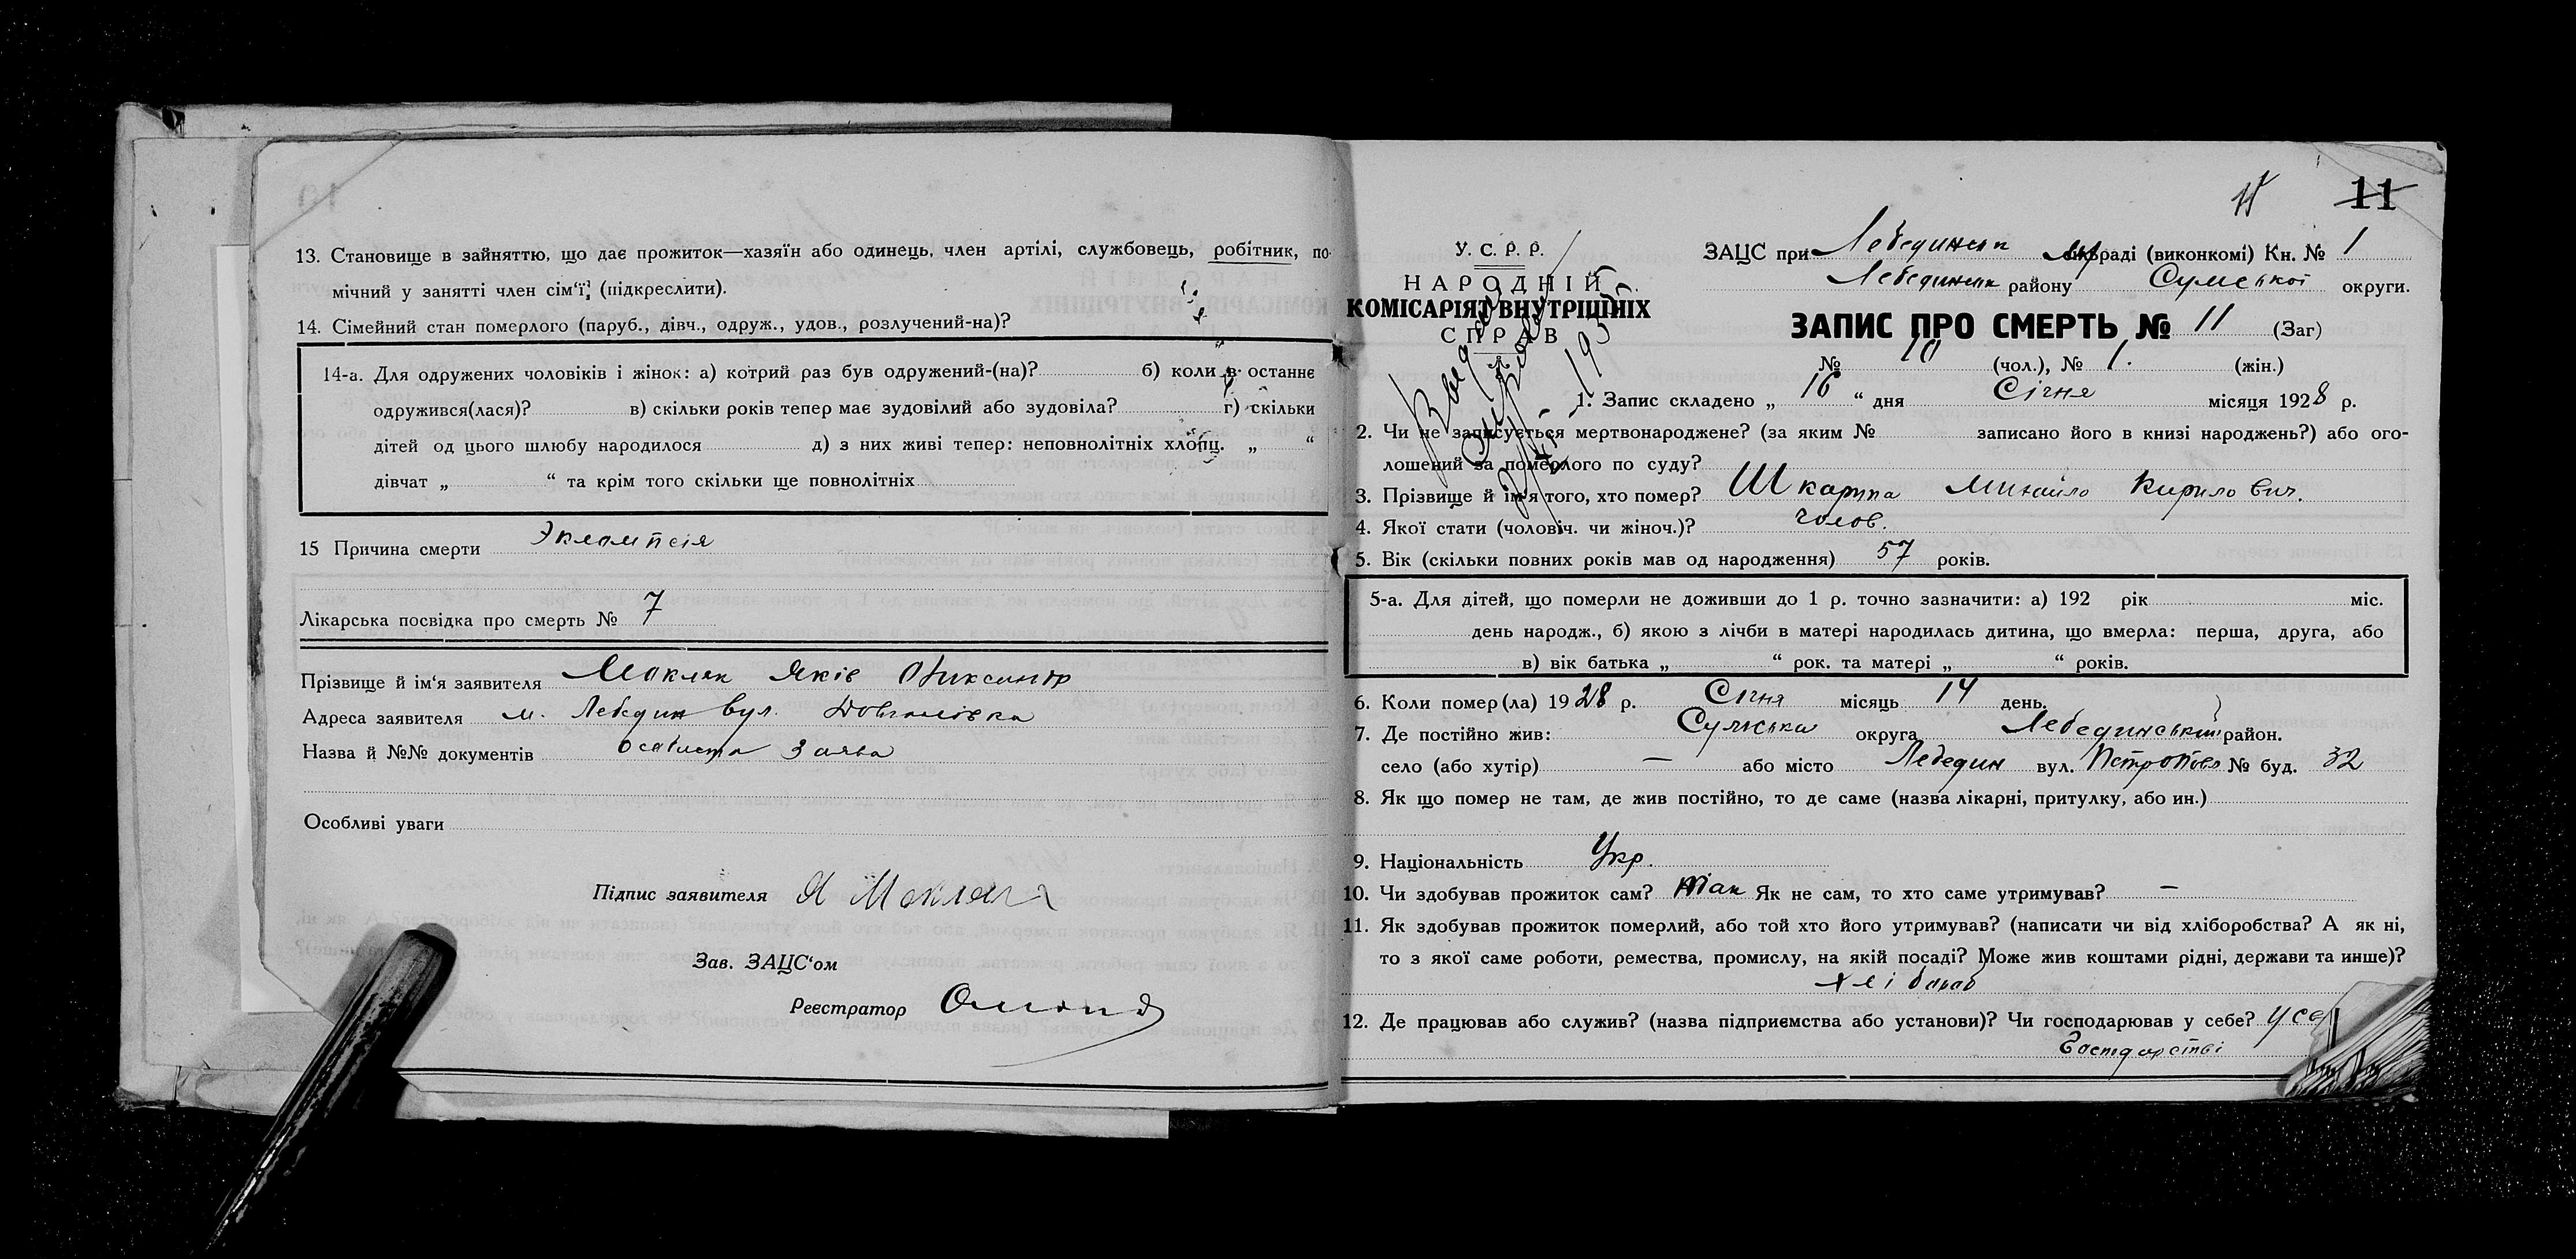 13. Становище в зайняттю, що дає прожиток—хазяїн або одинець, член артілі, службовець, робітник, по-
мічний у занятті член сім'ї, (підкреслити).
14. Сімейний стан померлого (паруб., дівч., одруж., удов., розлучений-на)?
14-а. Для одружених чоловіків і жінок: а) котрий раз був одружений-(на)? б) коли в останнє
одружився(лася)? в) скільки років тепер має зудовілий або зудовіла? г) скільки
дітей од цього шлюбу народилося д) з них живі тепер: неповнолітніх хлопц. „ “
дівчат „ “ та крім того скільки ще повнолітніх
15 Причина смерти Эклампсія
Лікарська посвідка про смерть № 7
Прізвище й ім'я заявителя Макляк Яків
Адреса заявителя м. Лебедин вул.
Назва й №№ документів особиста заява
Особливі уваги
Підпис заявителя Я Макляк
Зав. ЗАЦС'ом
Реєстратор
11
У. С. Р. Р.
НАРОДНІЙ
КОМІСАРІЯТ ВНУТРІШНІХ
СПРАВ
ЗАЦС при Лебединськ раді (виконкомі) Кн. № 1
Лебединськ району Сумської округи.
ЗАПИС ПРО СМЕРТЬ № 11 (Заг)
№ 10 (чол.), № 1. (жін.)
1. Запис складено „ 16 “ дня Січня місяця 1928 р.
2. Чи не записується мертвонароджене? (за яким № записано його в книзі народжень?) або ого-
лошений за померлого по суду?
3. Прізвище й ім'я того, хто помер? Шкарпа Михайло Кирилович.
4. Якої стати (чоловіч. чи жіноч.)? чолов.
5. Вік (скільки повних років мав од народження) 57 років.
5-а. Для дітей, що померли не доживши до 1 р. точно зазначити: а) 192 рік міс.
день народж., б) якою з лічби в матері народилась дитина, що вмерла: перша, друга, або
в) вік батька „ “ рок. та матері „ “ років.
6. Коли помер(ла) 1928 р. Січня місяць 14 день.
7. Де постійно жив: Сумська округа Лебединський район.
село (або хутір) — або місто Лебедин вул. № буд. 32
8. Як що помер не там, де жив постійно, то де саме (назва лікарні, притулку, або ин.)
9. Національність Укр.
10. Чи здобував прожиток сам? так Як не сам, то хто саме утримував? —
11. Як здобував прожиток померлий, або той хто його утримував? (написати чи від хліборобства? А як ні,
то з якої саме роботи, ремества, промислу, на якій посаді? Може жив коштами рідні, держави та инше)?
хлібороб
12. Де працював або служив? (назва підприємства або установи)? Чи господарював у себе?